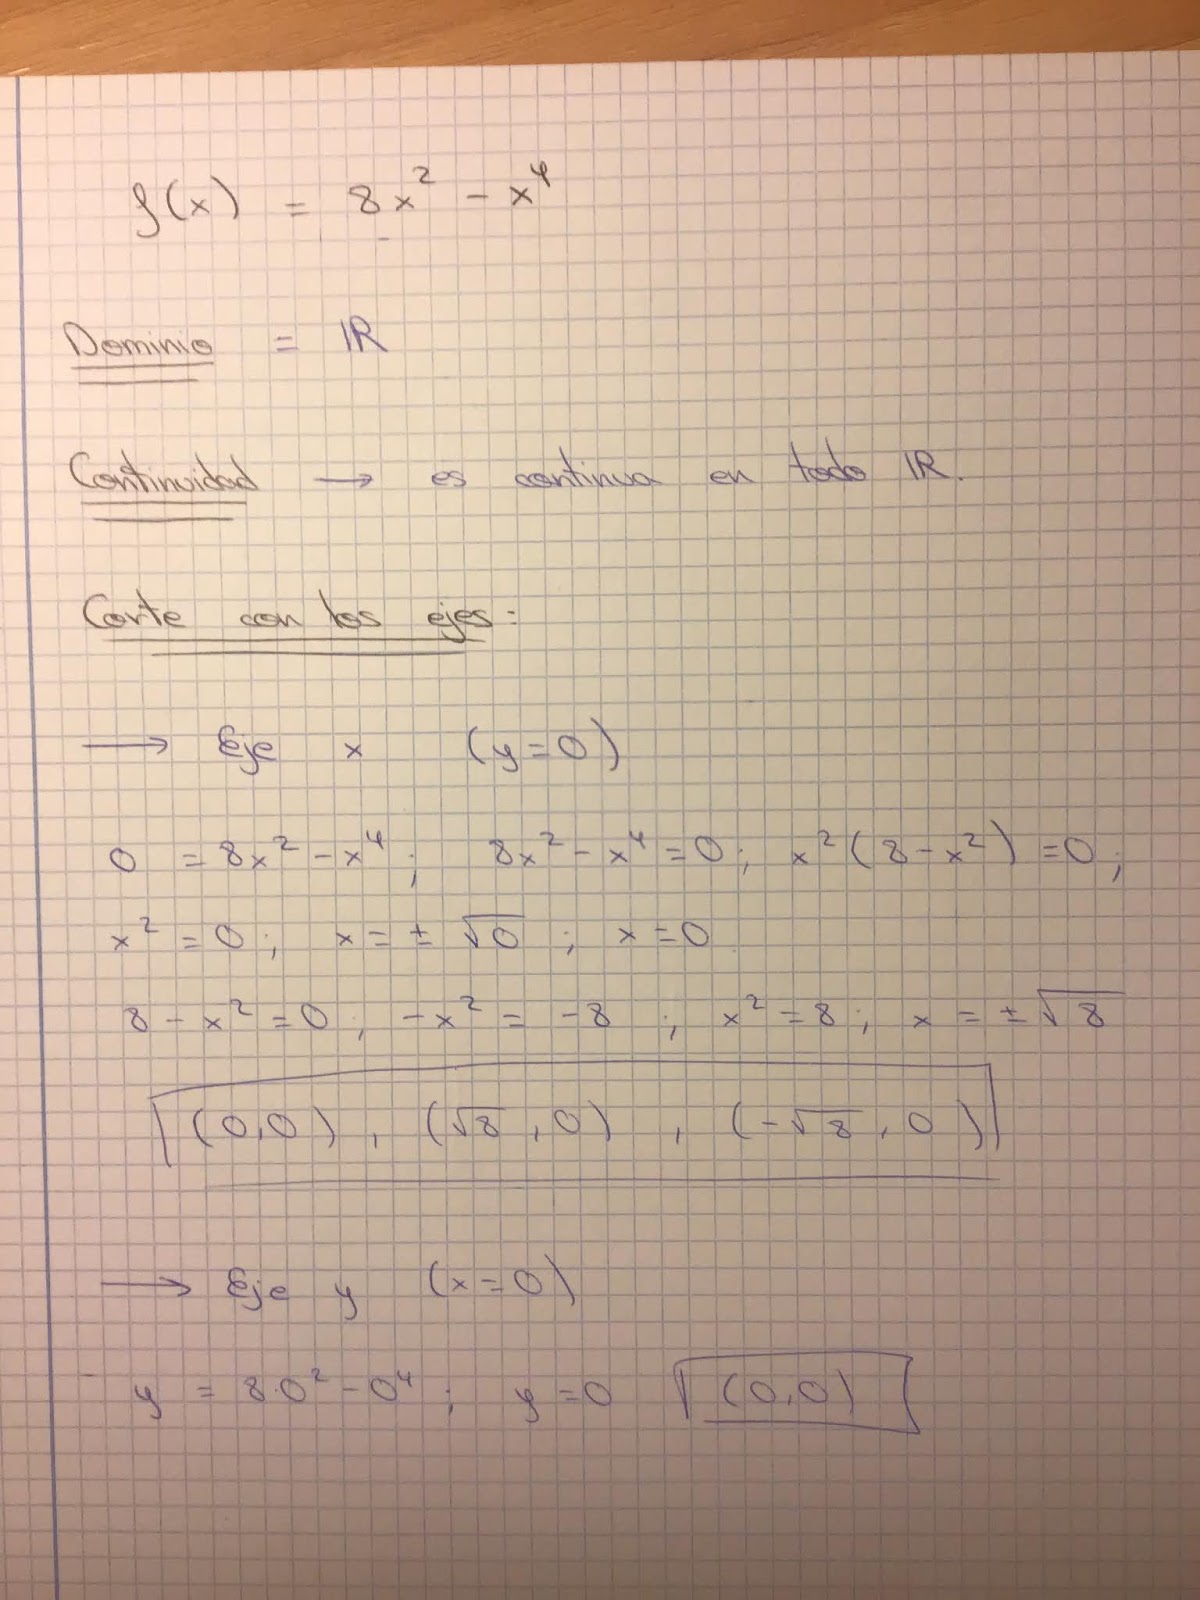 f(x) = 8x² - x⁴
Dominio = ℝ
Continuidad → es continua en todo ℝ.
Corte con los ejes:
→ Eje x (y=0)
0 = 8x² - x⁴; 8x² - x⁴ = 0; x²(8-x²) = 0;
x² = 0; x = ± √0; x = 0
8 - x² = 0; -x² = -8; x² = 8; x = ± √8
(0,0), (√8, 0), (-√8, 0)
→ Eje y (x=0)
y = 8·0² - 0⁴; y = 0 (0,0)